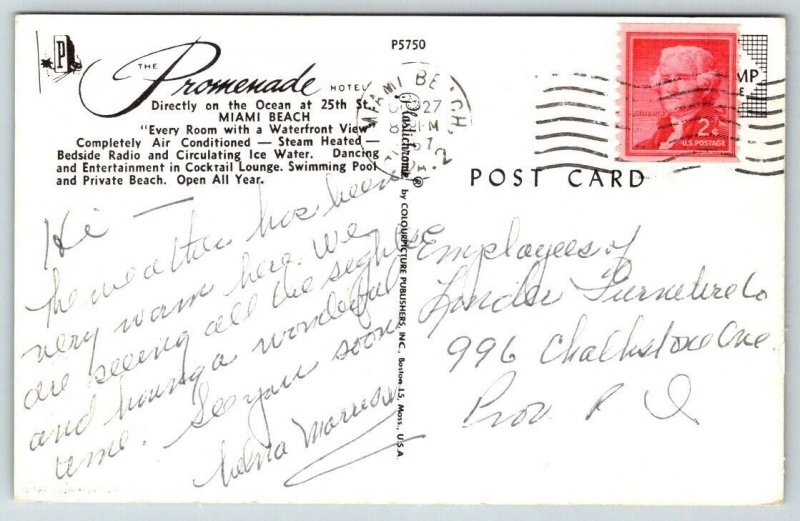 P5750
THE Promenade HOTEL
Directly on the Ocean at 25th St.
MIAMI BEACH
"Every Room with a Waterfront View"
Completely Air Conditioned — Steam Heated —
Bedside Radio and Circulating Ice Water. Dancing
and Entertainment in Cocktail Lounge. Swimming Pool
and Private Beach. Open All Year.
MIAMI BEACH,
27
2
2¢
U.S. POSTAGE
POST CARD
Plastichrome® by COLOURPICTURE PUBLISHERS, INC., Boston 15, Mass., U.S.A.
Hi —
The weather has been
very warm here. We
are seeing all the sights
and having a wonderful
time. See you soon
Employees of
Linder Furniture Co
996 Chalkstone Ave
Prov. R I